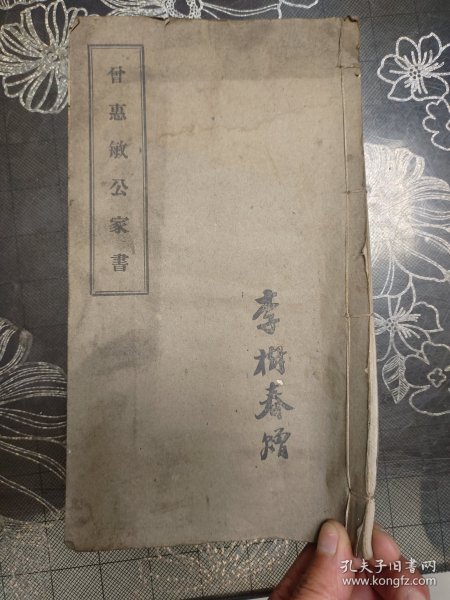 什惠敏公家書
李樹春贈
孔夫子旧书网
www.kongfz.com